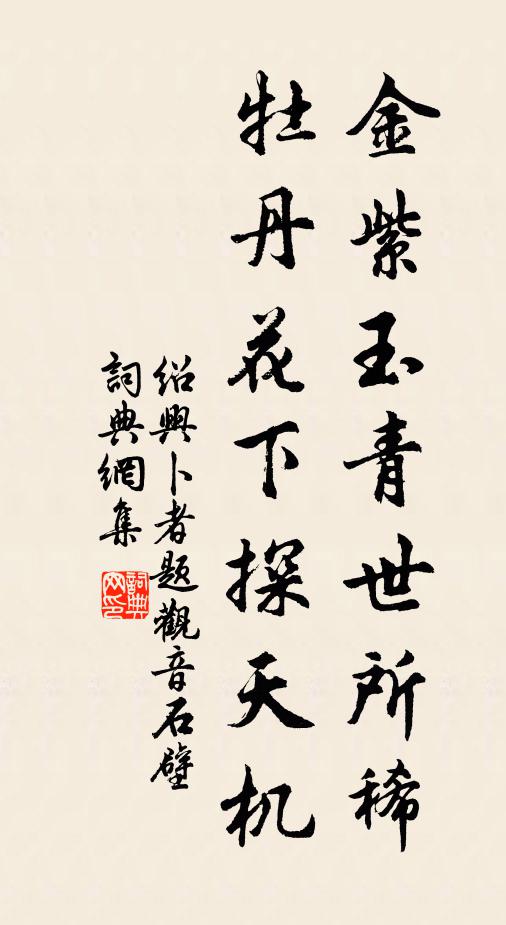 金紫玉青世所稀
牡丹花下探天机
绍興卜者题觀音石壁
詞典網集
詞典网印